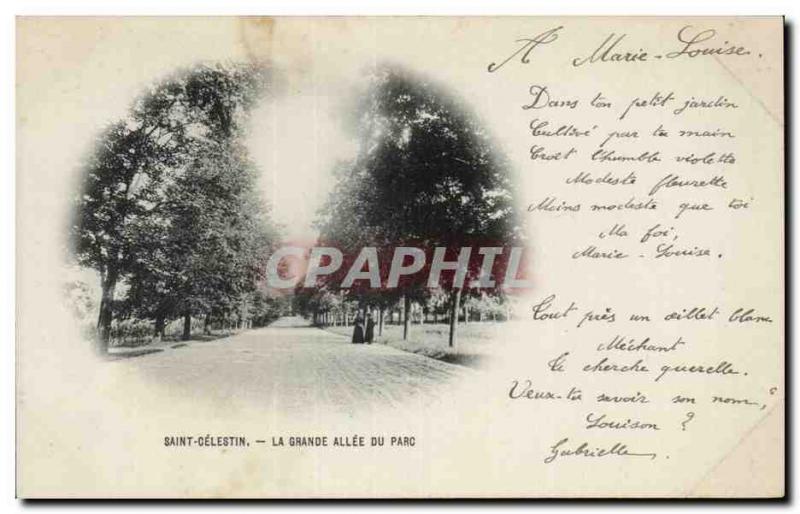 A Marie-Louise.
Dans ton petit jardin
Cultivé par ta main
Croît l'humble violette
Modeste fleurette
Moins modeste que toi
Ma foi,
Marie-Louise.
Tout près un œillet blanc
Méchant
Te cherche querelle.
Veux-tu savoir son nom,
Louison ?
Gabrielle.
CPAPHIL.com
SAINT-CÉLESTIN. — LA GRANDE ALLÉE DU PARC